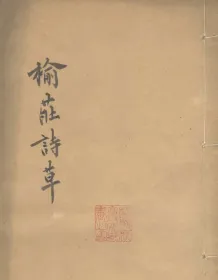 榆莊詩草